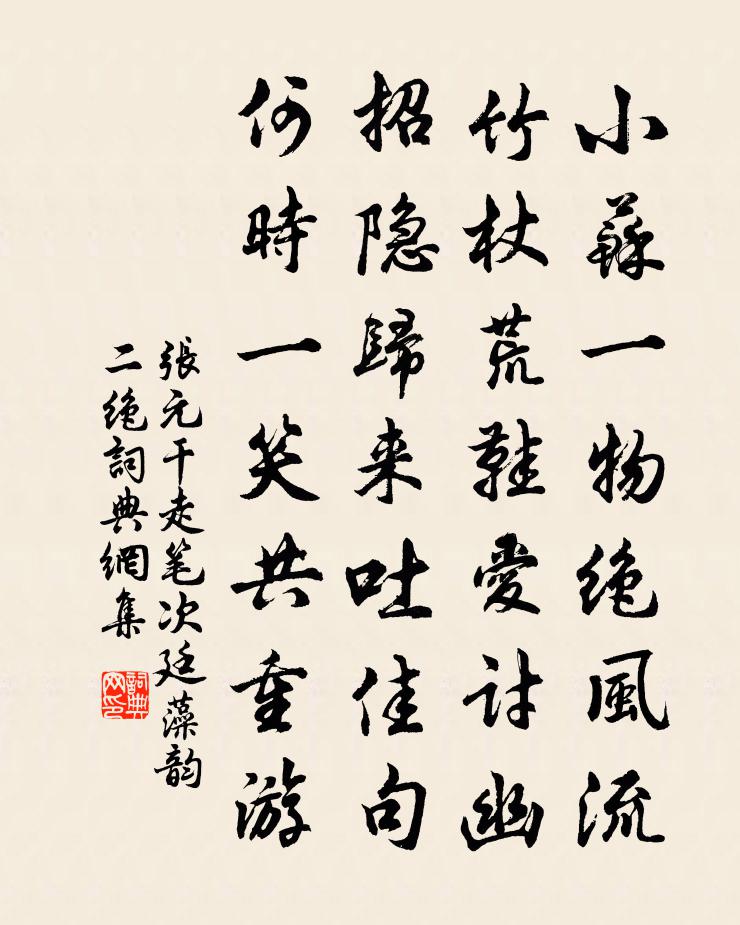 小蘇一物绝風流
竹杖荒鞋愛討幽
招隐歸来吐佳句
何時一笑共重游
張元干走笔次廷藻韵
二绝詞典網集
詞典
网印